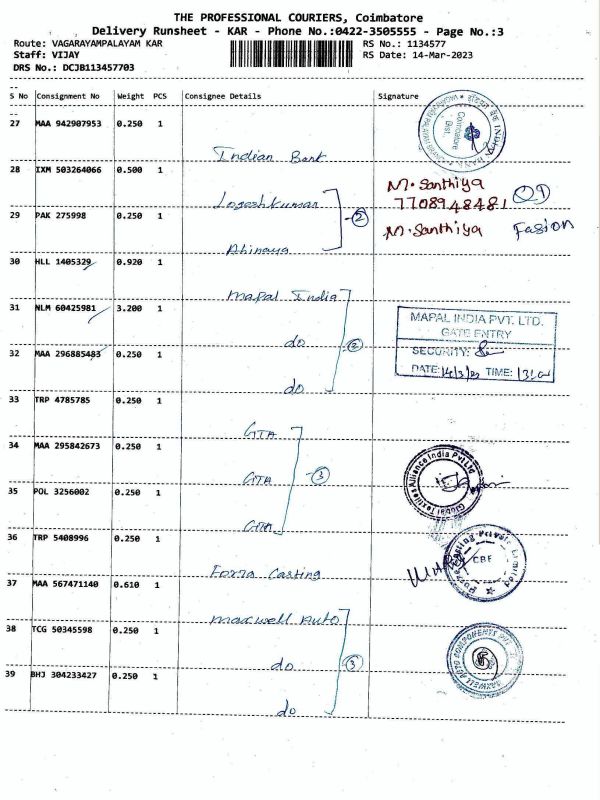 THE PROFESSIONAL COURIERS, Coimbatore
Delivery Runsheet - KAR - Phone No.:0422-3505555 - Page No.:3
Route: VAGARAYAMPALAYAM KAR
RS No.: 1134577
Staff: VIJAY
RS Date: 14-Mar-2023
DRS No.: DCJB113457703
S No Consignment No Weight PCS Consignee Details Signature
27 MAA 942907953 0.250 1
Indian Bank
Coimbatore
Dist.
28 IXM 503264066 0.500 1
Logeshkumar
M. Santhiya
7708948481
29 PAK 275998 0.250 1
②
M. Santhiya Fasion
Abinaya
30 HLL 1405329 0.920 1
Mapal India
31 NLM 60425981 3.200 1
do
②
MAPAL INDIA PVT. LTD.
GATE ENTRY
SECURITY:
DATE: 14/3/23 TIME:
32 MAA 296885483 0.250 1
do
33 TRP 4785785 0.250 1
GTA
34 MAA 295842673 0.250 1
GTA
③
Textiles Alliance India Pvt Ltd
35 POL 3256002 0.250 1
GTA
36 TRP 5408996 0.250 1
Forza Casting
CBE
37 MAA 567471140 0.610 1
Maxwell Auto
38 TCG 50345598 0.250 1
do
③
39 BHJ 304233427 0.250 1
do